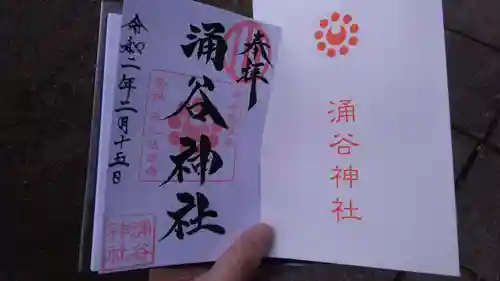 奉拝
涌谷神社
令和二年二月十五日
涌谷
神社
涌谷神社